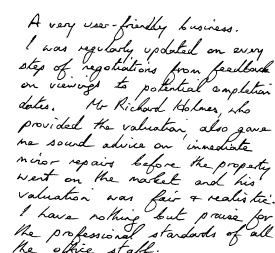 A very user-friendly business.
I was regularly updated on every
step of negotiations from feedback
on viewings to potential completion
dates. Mr Richard Holmes, who
provided the valuation, also gave
me sound advice on immediate
minor repairs before the property
went on the market and his
valuation was fair + realistic.
I have nothing but praise for
the professional standards of all
the office staff.